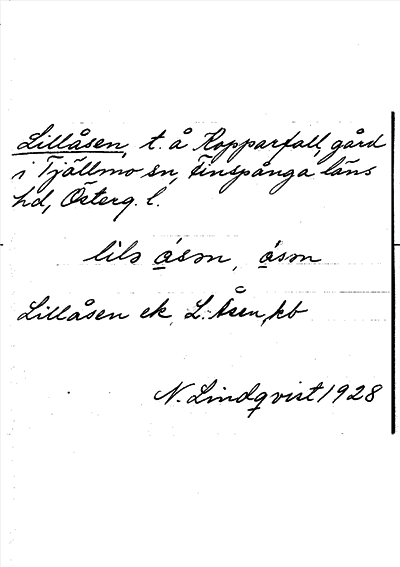 Lillåsen, t. å Kopparfall, gård
i Tjällmo sn, Finspånga läns
hd, Österg. l.
lilə åsən, åsən
Lillåsen ek, L. Åsen, kb
N. Lindqvist 1928